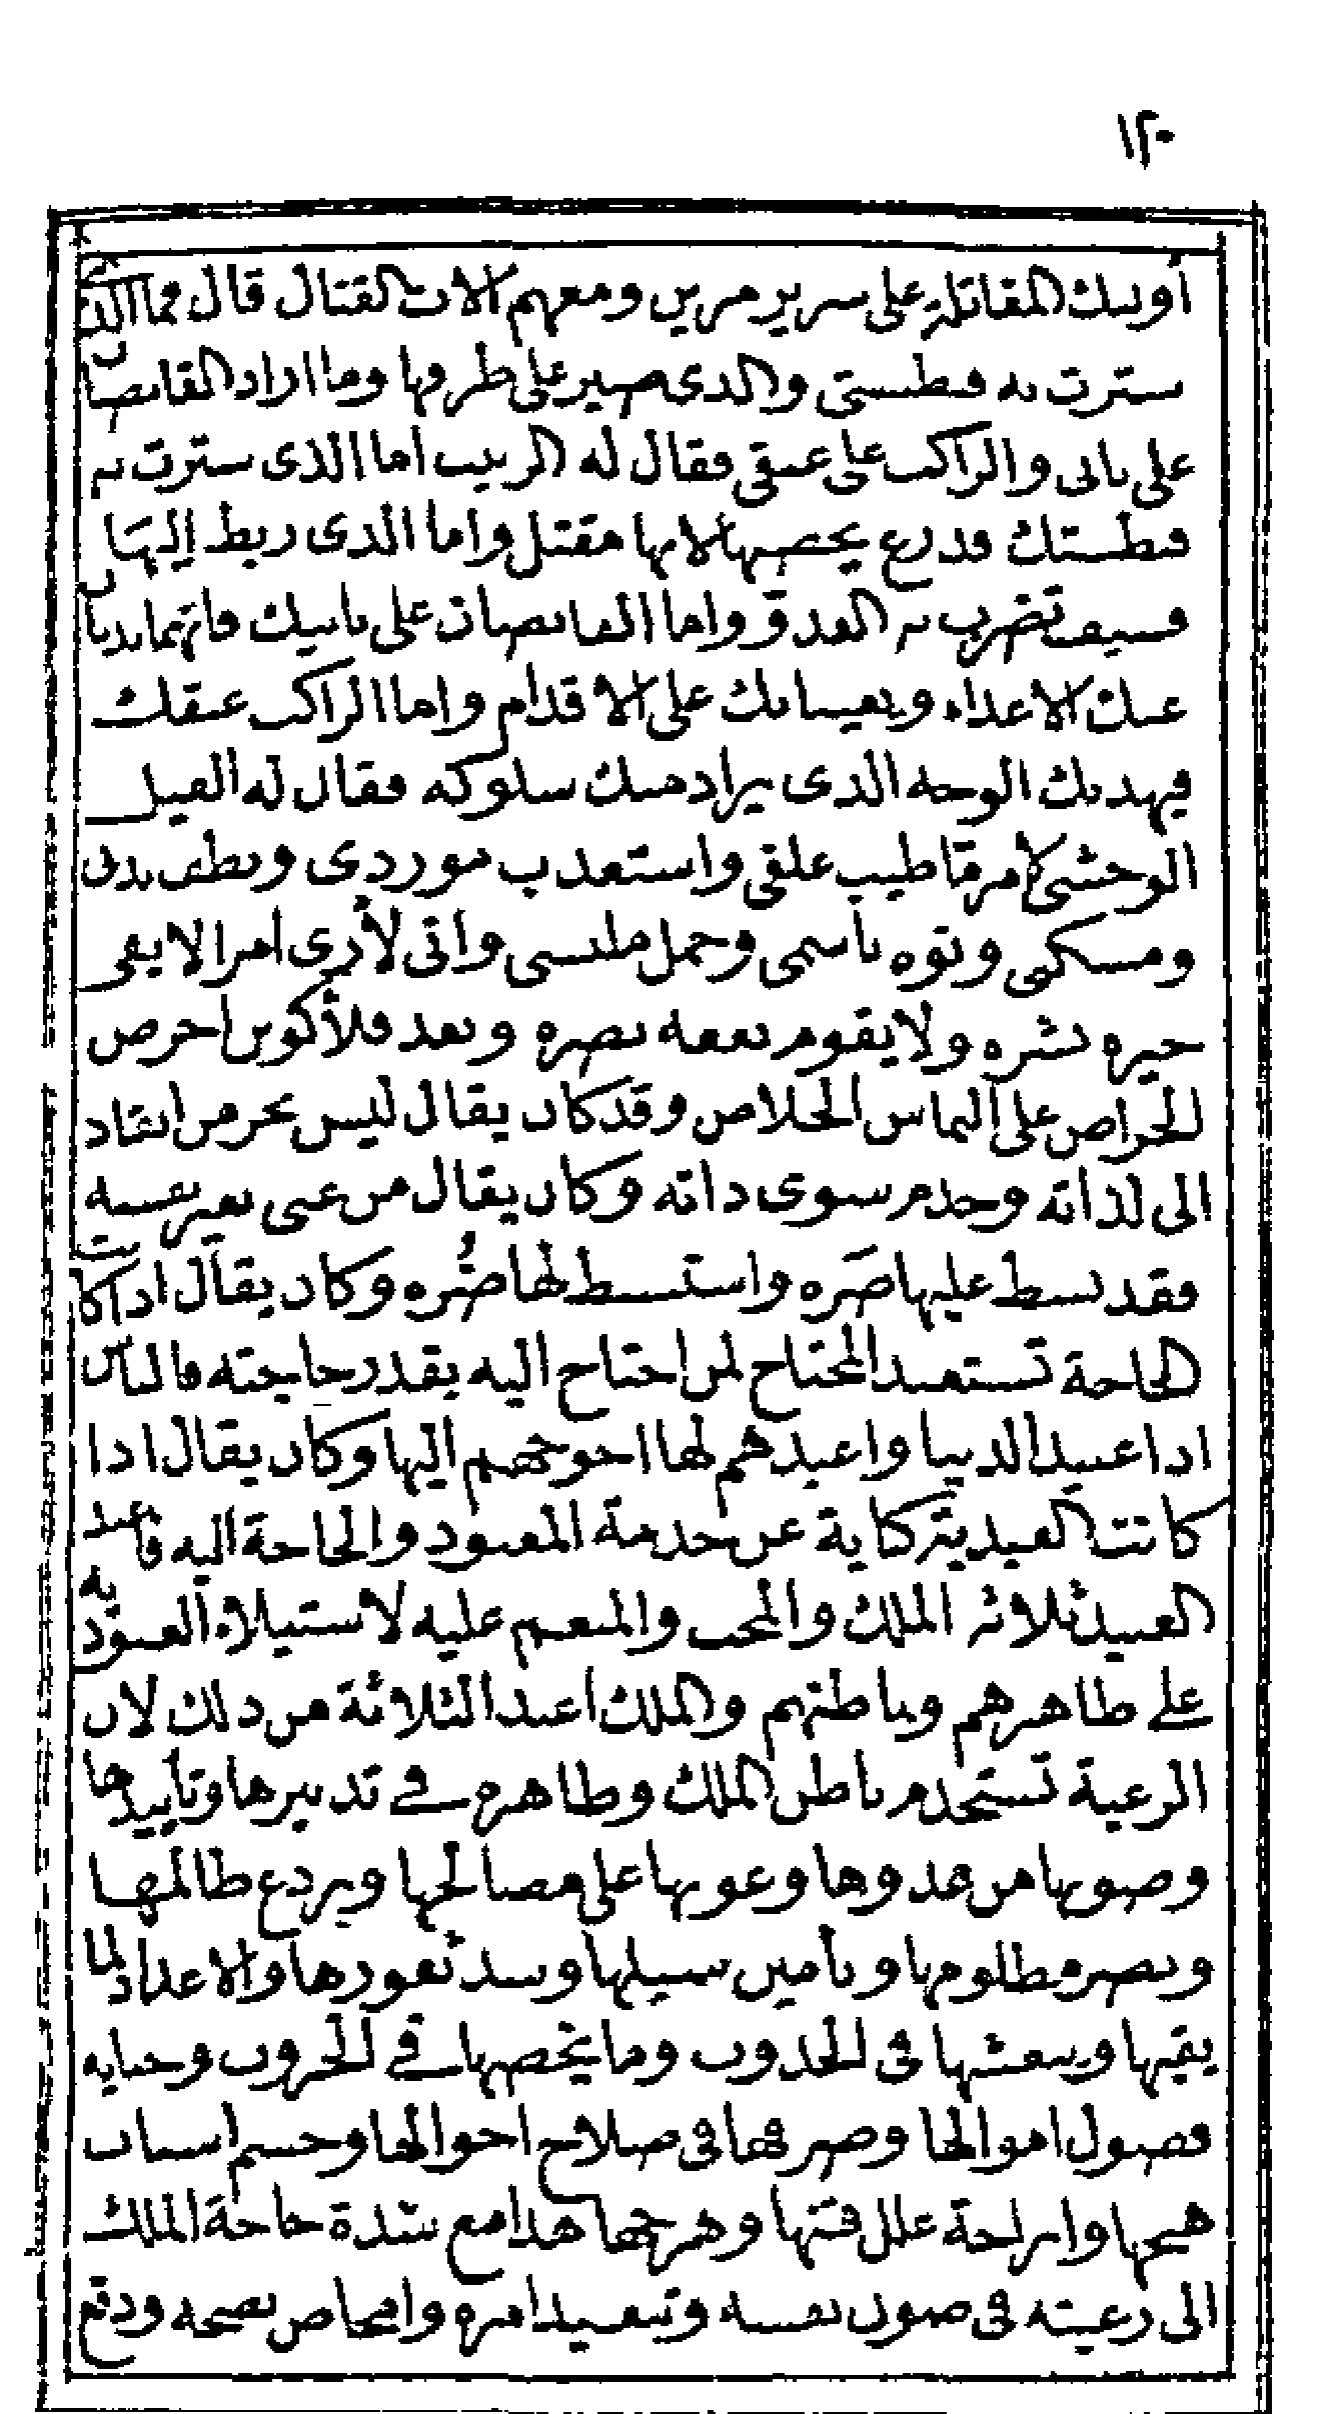 ١٢٠
أوليك المقاتلة على سرير مرين ومعهم الات القتال قال فما الذى
سترت به فنطستى والذى صير على طرفها وما اراد القابضان
على نابى والراكب على عنقى فقال له الربيب اما الذى سترت به
فنطستك فدرع يحصنها لانها مقتل واما الذى ربط اليها
فسيف تضرب به العدو واما القابضان على نابيك فانهما يذبان
عنك الاعداء ويعينانك على الاقدام واما الراكب عنقك
فيهديك الوجه الذى يراد منك سلوكه فقال له الفيل
الوحشى لامر ما طيب علفى واستعذب موردى ونظف بدنى
ومسكنى ونوه باسمى وجمل ملبسى وانى لأرى امرا لا يفى
خيره بشره ولا يقوم نفعه بضره وبعد فلأكونن احرص
الحراص على التماس الخلاص وقد كان يقال ليس بحر من انقاد
الى لذاته وخدم سوى ذاته وكان يقال من عنى بغير نفسه
فقد بسط عليها ضره واستبسط لها ضره وكان يقال اذا كانت
الحاجة تستعبد المحتاج لمن احتاج اليه بقدر حاجته فالناس
اذا عبيد الدنيا واعبدهم لها احوجهم اليها وكان يقال اذا
كانت العبدية كناية عن خدمة المعبود والحاجة اليه فاعبد
العبيد ثلاثة الملك والمحب والمنعم عليه لاستيلاء العبودية
على ظاهرهم وباطنهم والملك اعبد الثلاثة من ذلك لان
الرعية تستخدم باطن الملك وظاهره فى تدبيرها وتأييدها
وصونها من عدوها وعونها على مصالحها ويردع ظالمها
وينصر مظلومها وتأمين سبيلها وسد ثغورها والاعداد لما
يقيها وينعشها فى الجدوب وما يخصها فى الحروب وجباية
فضول اموالها وصرفها فى صلاح احوالها وحسم اسباب
هيجها وازاحة علل فتنها وهرجها هذا مع شدة حاجة الملك
الى رعيته فى صون نفسه وتنفيذ امره وامحاض نصحه ودفع